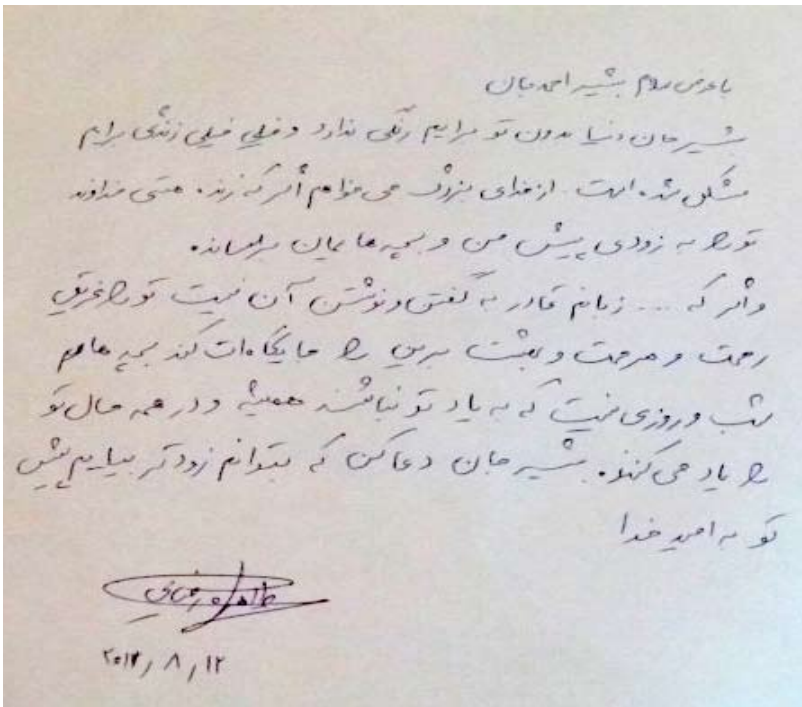 با عرض سلام بشیر احمد جان
بشیر جان دنیا بدون تو برایم رنگی ندارد و خیلی خیلی زندگی برایم
مشکل شده است. از خدای بزرگ می خواهم اگر که زنده هستی خداوند
تو را به زودی پیش من و بچه هایمان برساند.
و اگر که ... زبانم قادر به گفتن و نوشتن آن نیست تو را غریق
رحمت و مرحمت و بهشت برین را جایگاه ات کند بچه ها هم
شب و روزی نیست که به یاد تو نباشند همیشه و در همه حال تو
را یاد می کنند. بشیر جان دعا کن که بتوانم زودتر بیایم پیش
تو به امید خدا
طاهره
۲۰۱۳/۸/۱۲